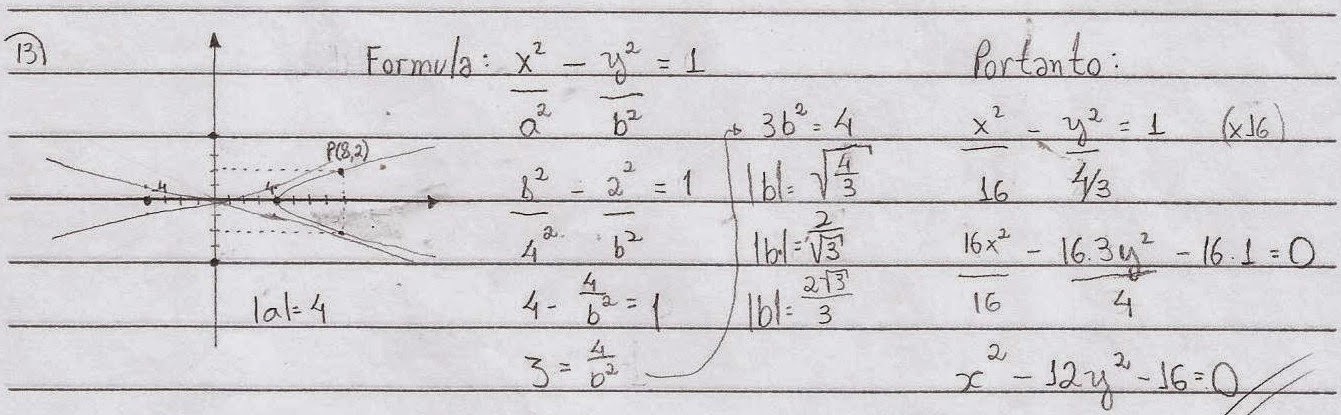 13)
P(8,2)
-4
4
|a| = 4
Formula: x²/a² - y²/b² = 1
8²/4² - 2²/b² = 1
4 - 4/b² = 1
3 = 4/b²
3b² = 4
|b| = √(4/3)
|b| = 2/√3
|b| = 2√3/3
Portanto:
x²/16 - y²/4/3 = 1 (x16)
16x²/16 - 16.3y²/4 - 16.1 = 0
x² - 12y² - 16 = 0